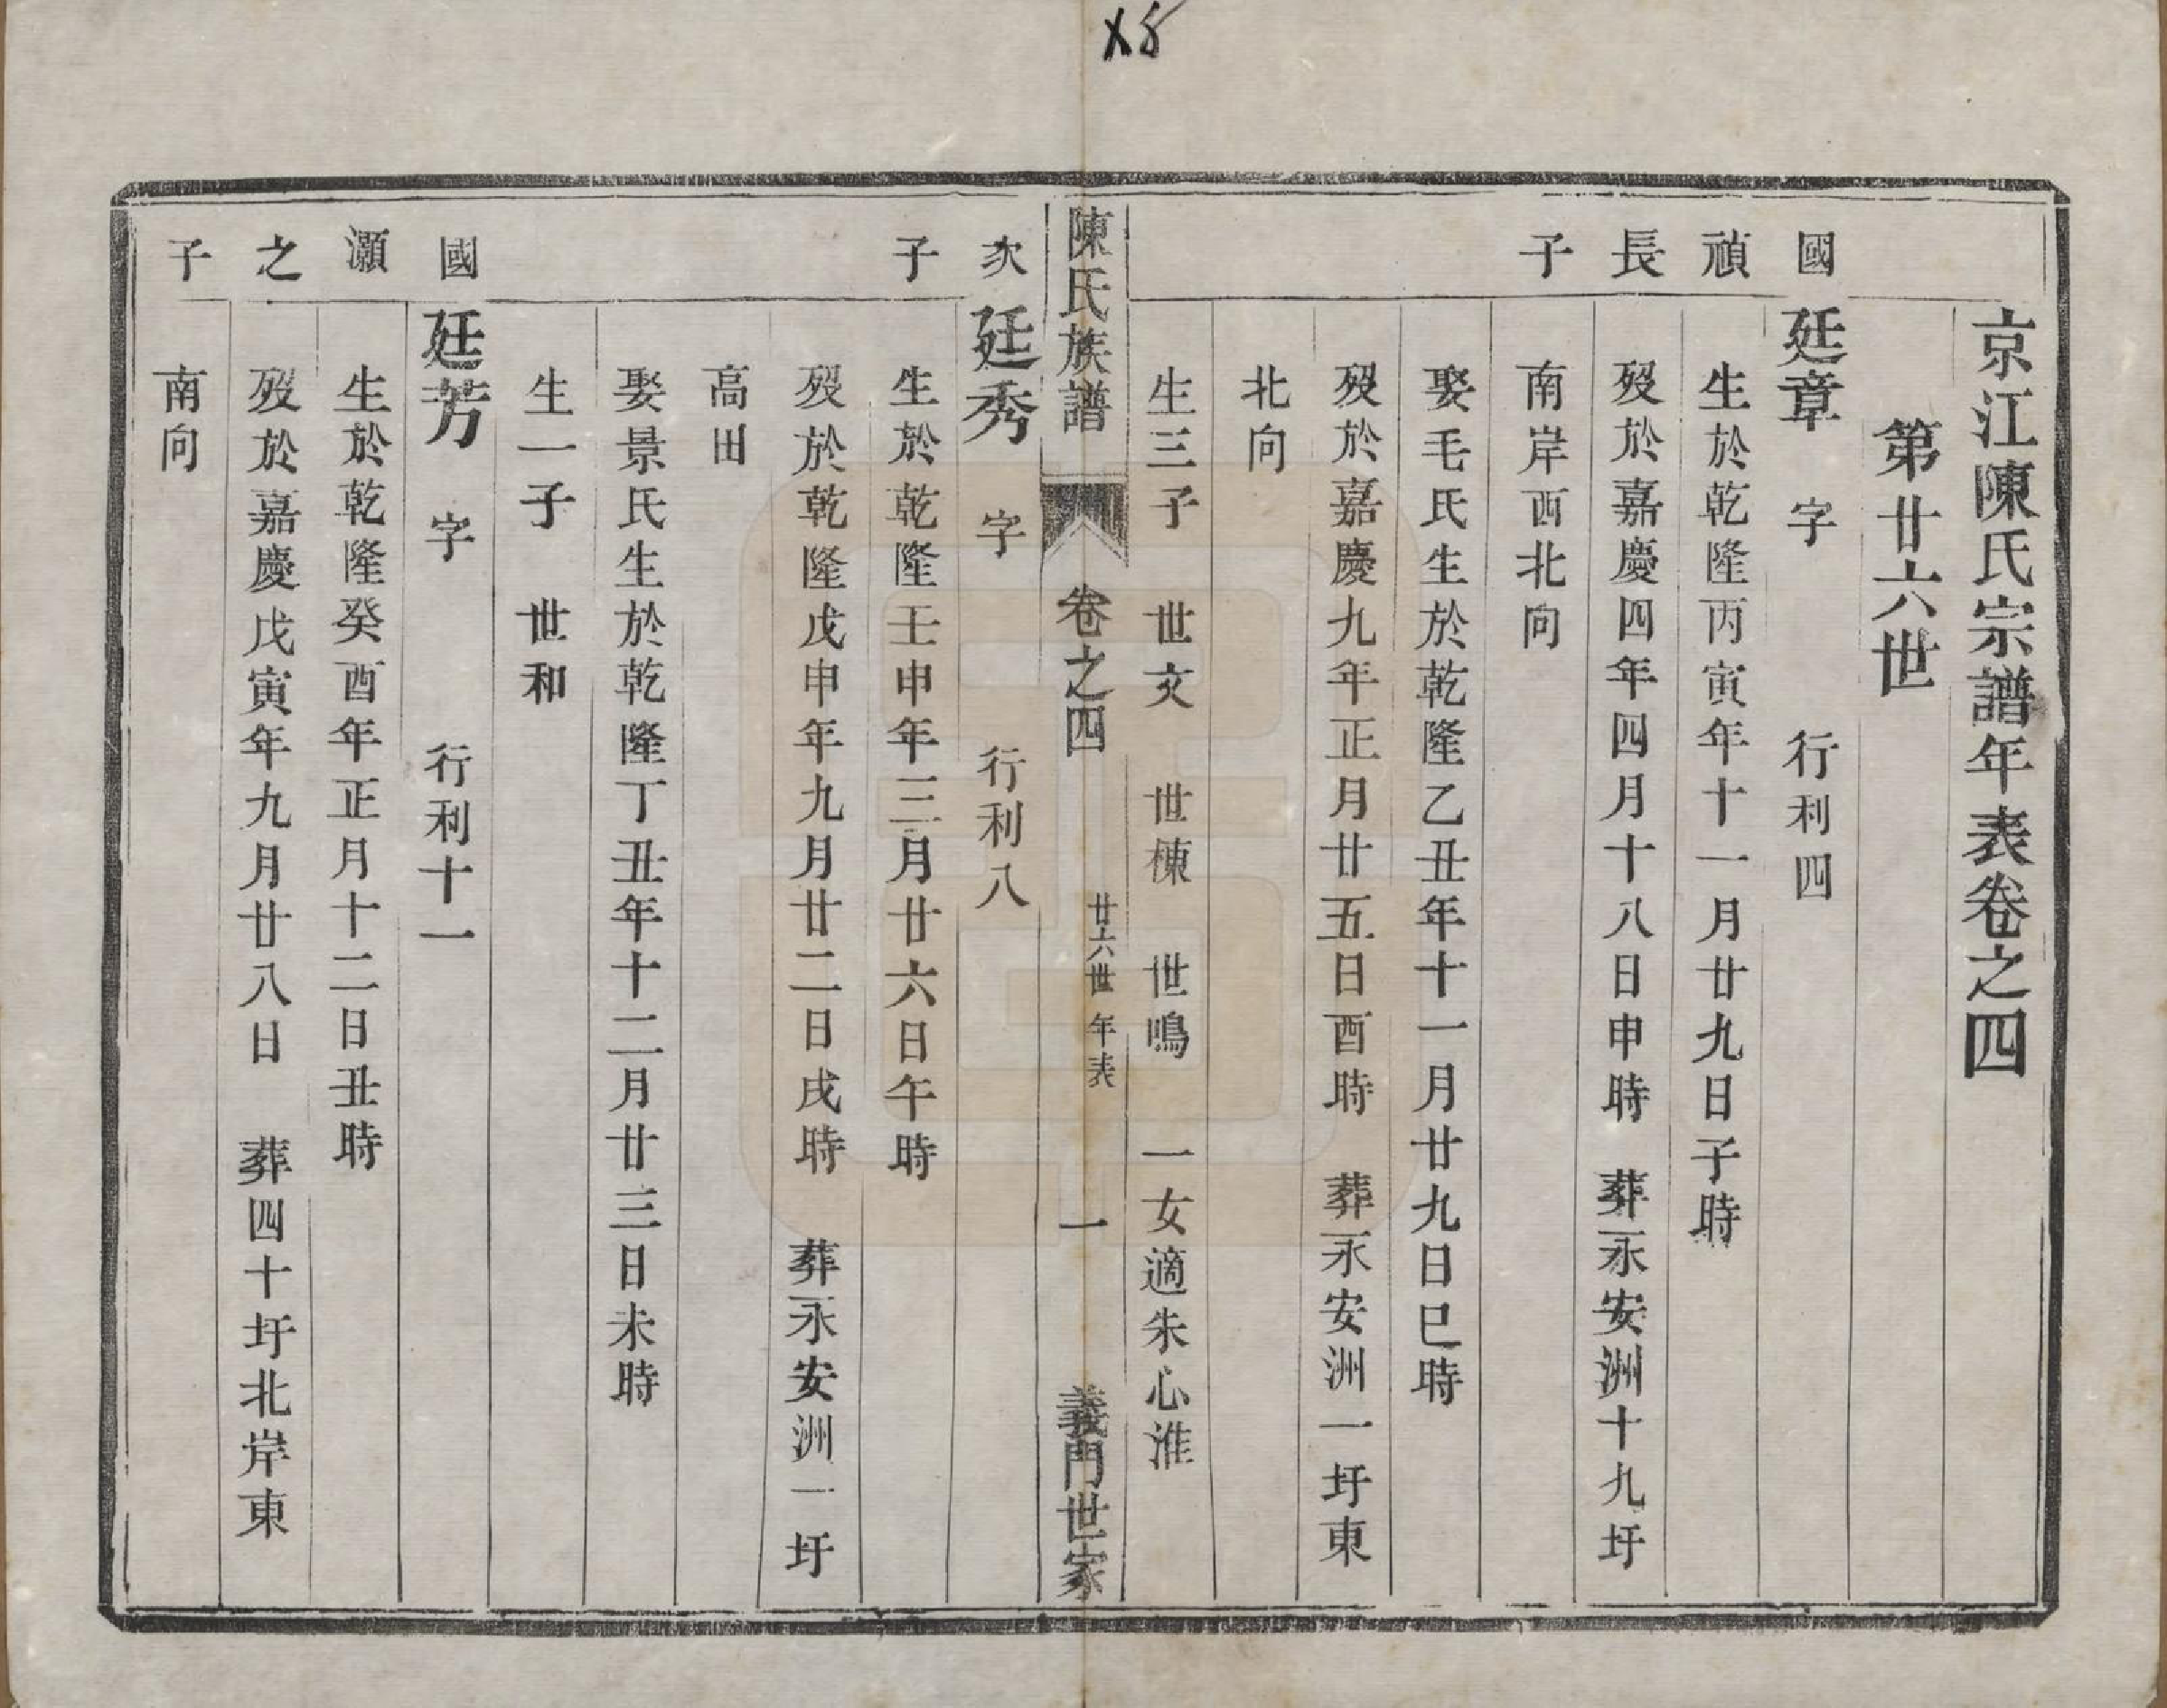 京江陳氏宗譜年表卷之四
第廿六世
國 廷章 字 行利四
禎 生於乾隆丙寅年十一月廿九日子時
長 歿於嘉慶四年四月十八日申時 葬永安洲十九圩
子 南岸西北向
娶毛氏生於乾隆乙丑年十一月廿九日巳時
歿於嘉慶九年正月廿五日酉時 葬永安洲一圩東
北向
生三子 世文 世棟 世鳴 一女適朱心淮
陳氏族譜 卷之四 廿六世 年表 一 義門世家
次 廷秀 字 行利八
子 生於乾隆壬申年三月廿六日午時
歿於乾隆戊申年九月廿二日戌時 葬永安洲一圩
高田
娶景氏生於乾隆丁丑年十二月廿三日未時
生一子 世和
國 廷芳 字 行利十一
灝 生於乾隆癸酉年正月十二日丑時
之 歿於嘉慶戊寅年九月廿八日 葬四十圩北岸東
子 南向